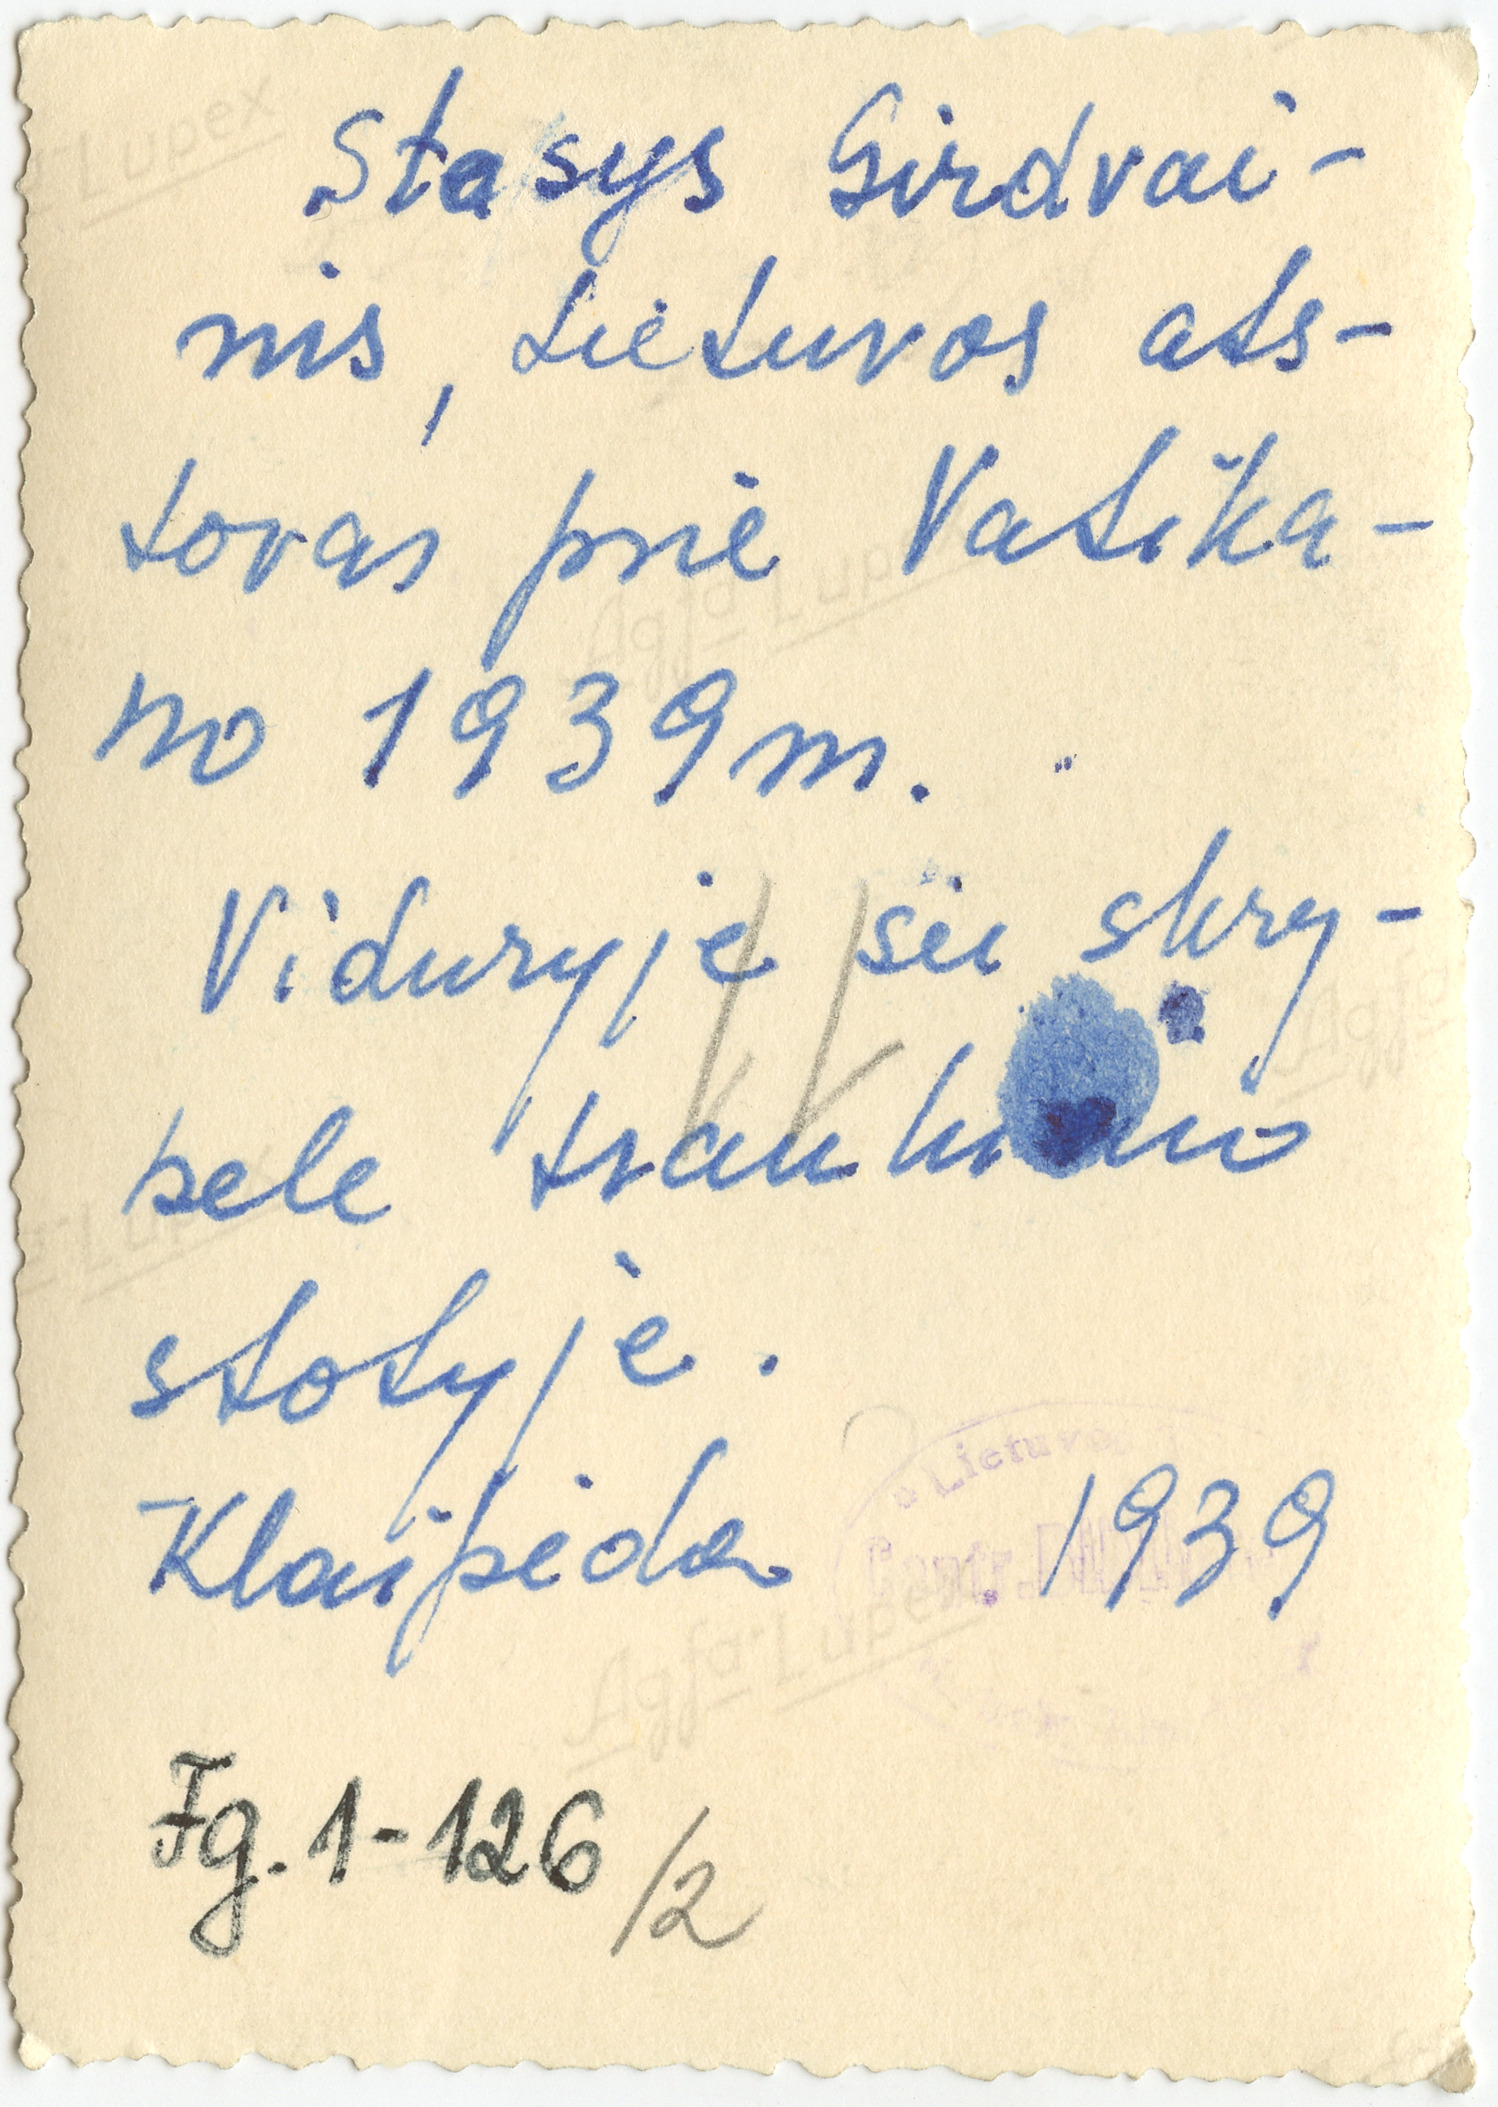 Stasys Girdvai-
nis, Lietuvos ats-
tovas prie Vatika-
no 1939 m.
Viduryje su skry-
bele traukinio
stotyje.
Klaipėda 1939
Fg. 1-126/2
Agfa-Lupex
Lietuvos
Centr.